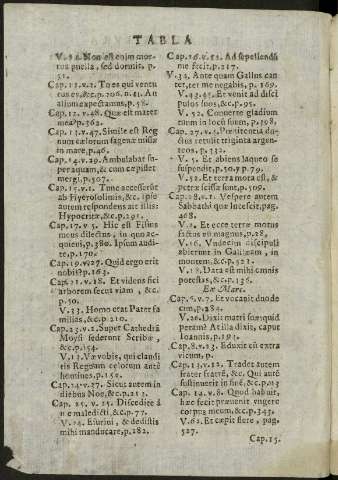 TABLA
V. 24. Non est enim mor-
tua puella, sed dormit, p.
51.
Cap. 11. v. 2. Tu es qui ventu
rus es, &c. p. 206. v. 41. An
alium expectamus, p. 58.
Cap. 12. v. 48. Quæ est mater
mea? p. 362.
Cap. 13. v. 47. Simile est Reg
num cælorum sagenæ missæ
in mare, p. 46.
Cap. 14. v. 29. Ambulabat su-
per aquam, & cum cæpisset
mergi, p. 507.
Cap. 15. v. 1. Tunc accesserũt
ab Hyerosolimis, &c. ipse
autem respondens ait illis:
Hypocritæ, &c. p. 291.
Cap. 17. v. 5. Hic est Filius
meus dilectus, in quo ac-
quievi, p. 380. Ipsum audi-
te, p. 170.
Cap. 19. v. 27. Quid ergo erit
nobis? p. 163.
Cap. 21. v. 18. Et videns fici
arborem secus viam, &c.
p. 50.
V. 33. Homo erat Pater fa
milias, &c. p. 210.
Cap. 23. v. 2. Super Cathedrã
Moysi sederunt Scribæ,
&c. p. 154.
V. 13. Væ vobis, qui claudi
tis Regnum cælorum antè
homines, p. 150.
Cap. 24. v. 27. Sicut autem in
diebus Noe, &c. p. 213.
Cap. 25. v. 25. Discedite à
me maledicti, &c. p. 77.
V. 24. Esurivi, & dedistis
mihi manducare, p. 282.
Cap. 26. v. 12. Ad sepeliendũ
me fecit, p. 217.
V. 34. Ante quam Gallus can
tet, ter me negabis, p. 169.
V. 43. 45. Et venit ad disci
pulos suos, &c. p. 95.
V. 52. Converte gladium
tuum in locũ suum, p. 398.
Cap. 27. v. 3. Pœnitentia du-
ctus retulit triginta argen-
teos, p. 332.
V. 5. Et abiens laqueo se
suspendit, p. 50. y p. 79.
V. 52. Et terra mota est, &
petræ scissæ sunt, p. 509.
Cap. 28. v. 1. Vespere autem
Sabbathi quæ lucescit, pag.
468.
V. 2. Et ecce terræ motus
factus est magnus, p. 28.
V. 16. Undecim discipuli
abierunt in Galilæam, in
montem, &c. p. 521.
V. 18. Data est mihi omnis
potestas, &c. p. 136.
Ex Marc.
Cap. 6. v. 7. Et vocavit duode
cim, p. 284.
V. 26. Dixit matri suæ: quid
petam? At illa dixit, caput
Ioannis, p. 193.
Cap. 8. v. 23. Eduxit eũ extra
vicum, p.
Cap. 13. v. 12. Tradet autem
frater fratrẽ, &c. Qui autẽ
sustinuerit in finẽ, &c. p. 13
Cap. 14. v. 8. Quod habuit,
hæc fecit: prævenit ungere
corpus meum, &c. p. 343.
V. 62. Et cæpit flere, pag.
527.
Cap. 15.